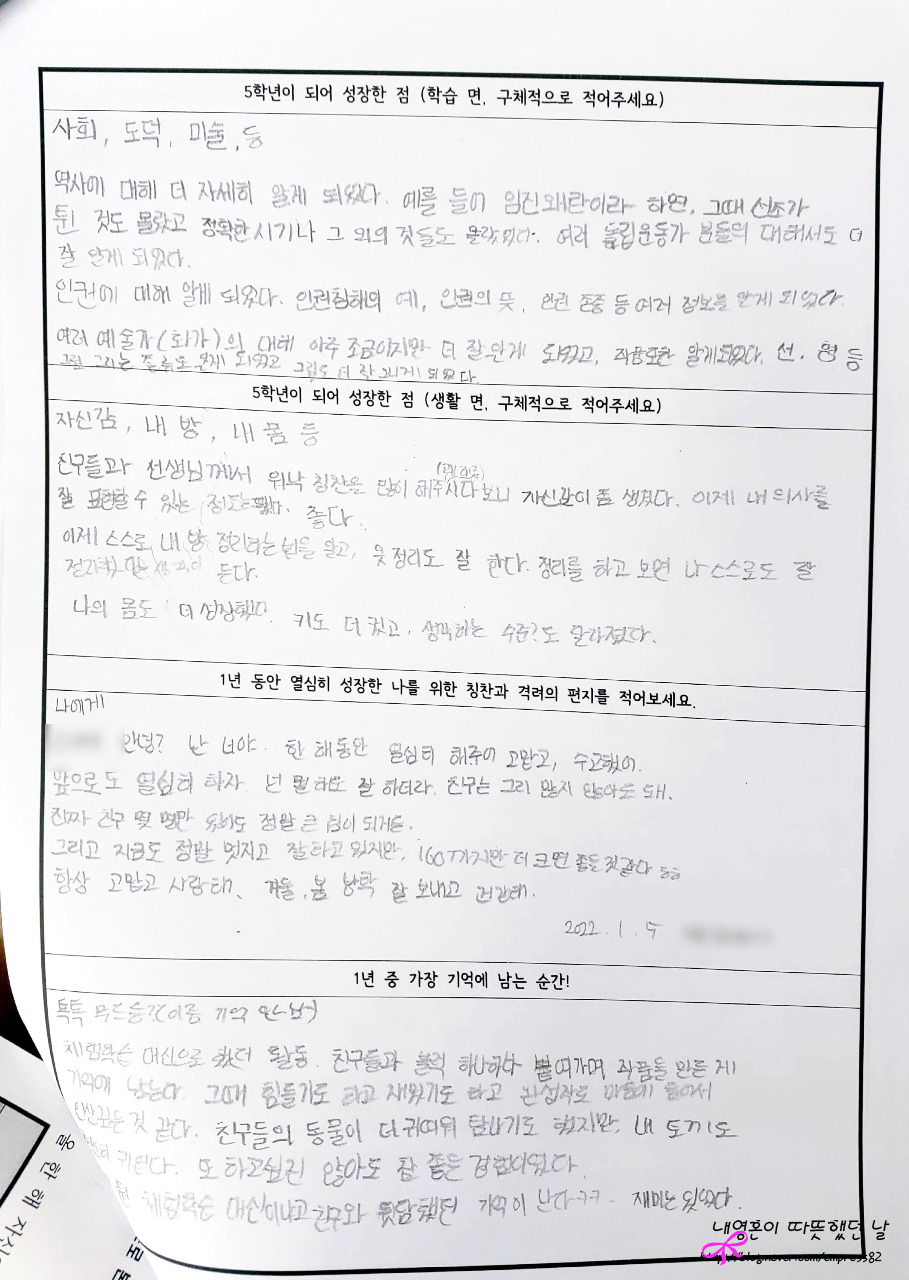 5학년이 되어 성장한 점 (학습 면, 구체적으로 적어주세요)
사회, 도덕, 미술, 등
역사에 대해 더 자세히 알게 되었다. 예를 들어 임진왜란이라 하면, 그때 선조가
튄 것도 몰랐고 정확한 시기나 그 외의 것들도 몰랐었다. 여러 독립운동가 분들의 대해서도 더
잘 알게 되었다.
인권에 대해 알게 되었다. 인권침해의 예, 인권의 뜻, 인권 존중 등 여러 정보를 알게 되었다.
여러 예술가(화가)의 대해 아주 조금이지만 더 잘 알게 되었고, 작품또한 알게되었다. 선, 원 등
그림 그리는 알게 되었고 그림도 더 잘 그리게 되었다.
5학년이 되어 성장한 점 (생활 면, 구체적으로 적어주세요)
자신감, 내 방, 내 몸 등
친구들과 선생님께서 워낙 칭찬을 많이 해주시다보니 자신감이 좀 생겼다. 이제 내 의사를
잘 표현할 수 있는 정도는 좋다.
이제 스스로 내 방 정리하는 법을 알고, 옷정리도 잘 한다. 정리를 하고 보면 나 스스로도 잘
든다.
나의 몸도 더 성장했다. 키도 더 컸고, 생각하는 수준?도 달라졌다.
1년 동안 열심히 성장한 나를 위한 칭찬과 격려의 편지를 적어보세요.
나에게
안녕? 난 너야. 한 해동안 열심히 해주어 고맙고, 수고했어.
앞으로도 열심히 하자. 넌 뭘 하든 잘 하더라. 친구는 그리 많지 않아도 돼.
진짜 친구 몇 명만 있어도 정말 큰 힘이 되거든.
그리고 지금도 정말 멋지고 잘하고 있지만, 160까지만 더 크면 좋을 것 같다 ㅎㅎ
항상 고맙고 사랑해. 겨울, 봄 방학 잘 보내고 건강해.
2022. 1. 5
1년 중 가장 기억에 남는 순간!
톡톡 (이름 기억
체험학습 대신으로 했던 활동. 친구들과 블럭 하나하나 붙여가며 작품을 만든 게
기억에 남는다. 그때 힘들기도 하고 재밌기도 하고 완성작도 마음에 들어서
것 같다. 친구들의 동물이 더 귀여워 탐나기도 했지만, 내 토끼도
귀엽다. 또 하고싶진 않아도 참 좋은 경험이었다.
체험학습 대신이냐고 친구와 뒷담했던 기억이 난다ㅋㅋ. 재미는 있었다.
내영혼이 따뜻했던 날